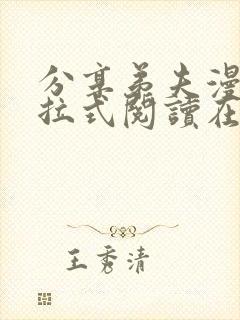 分享弟夫漫
拉式閱讀在
王秀清